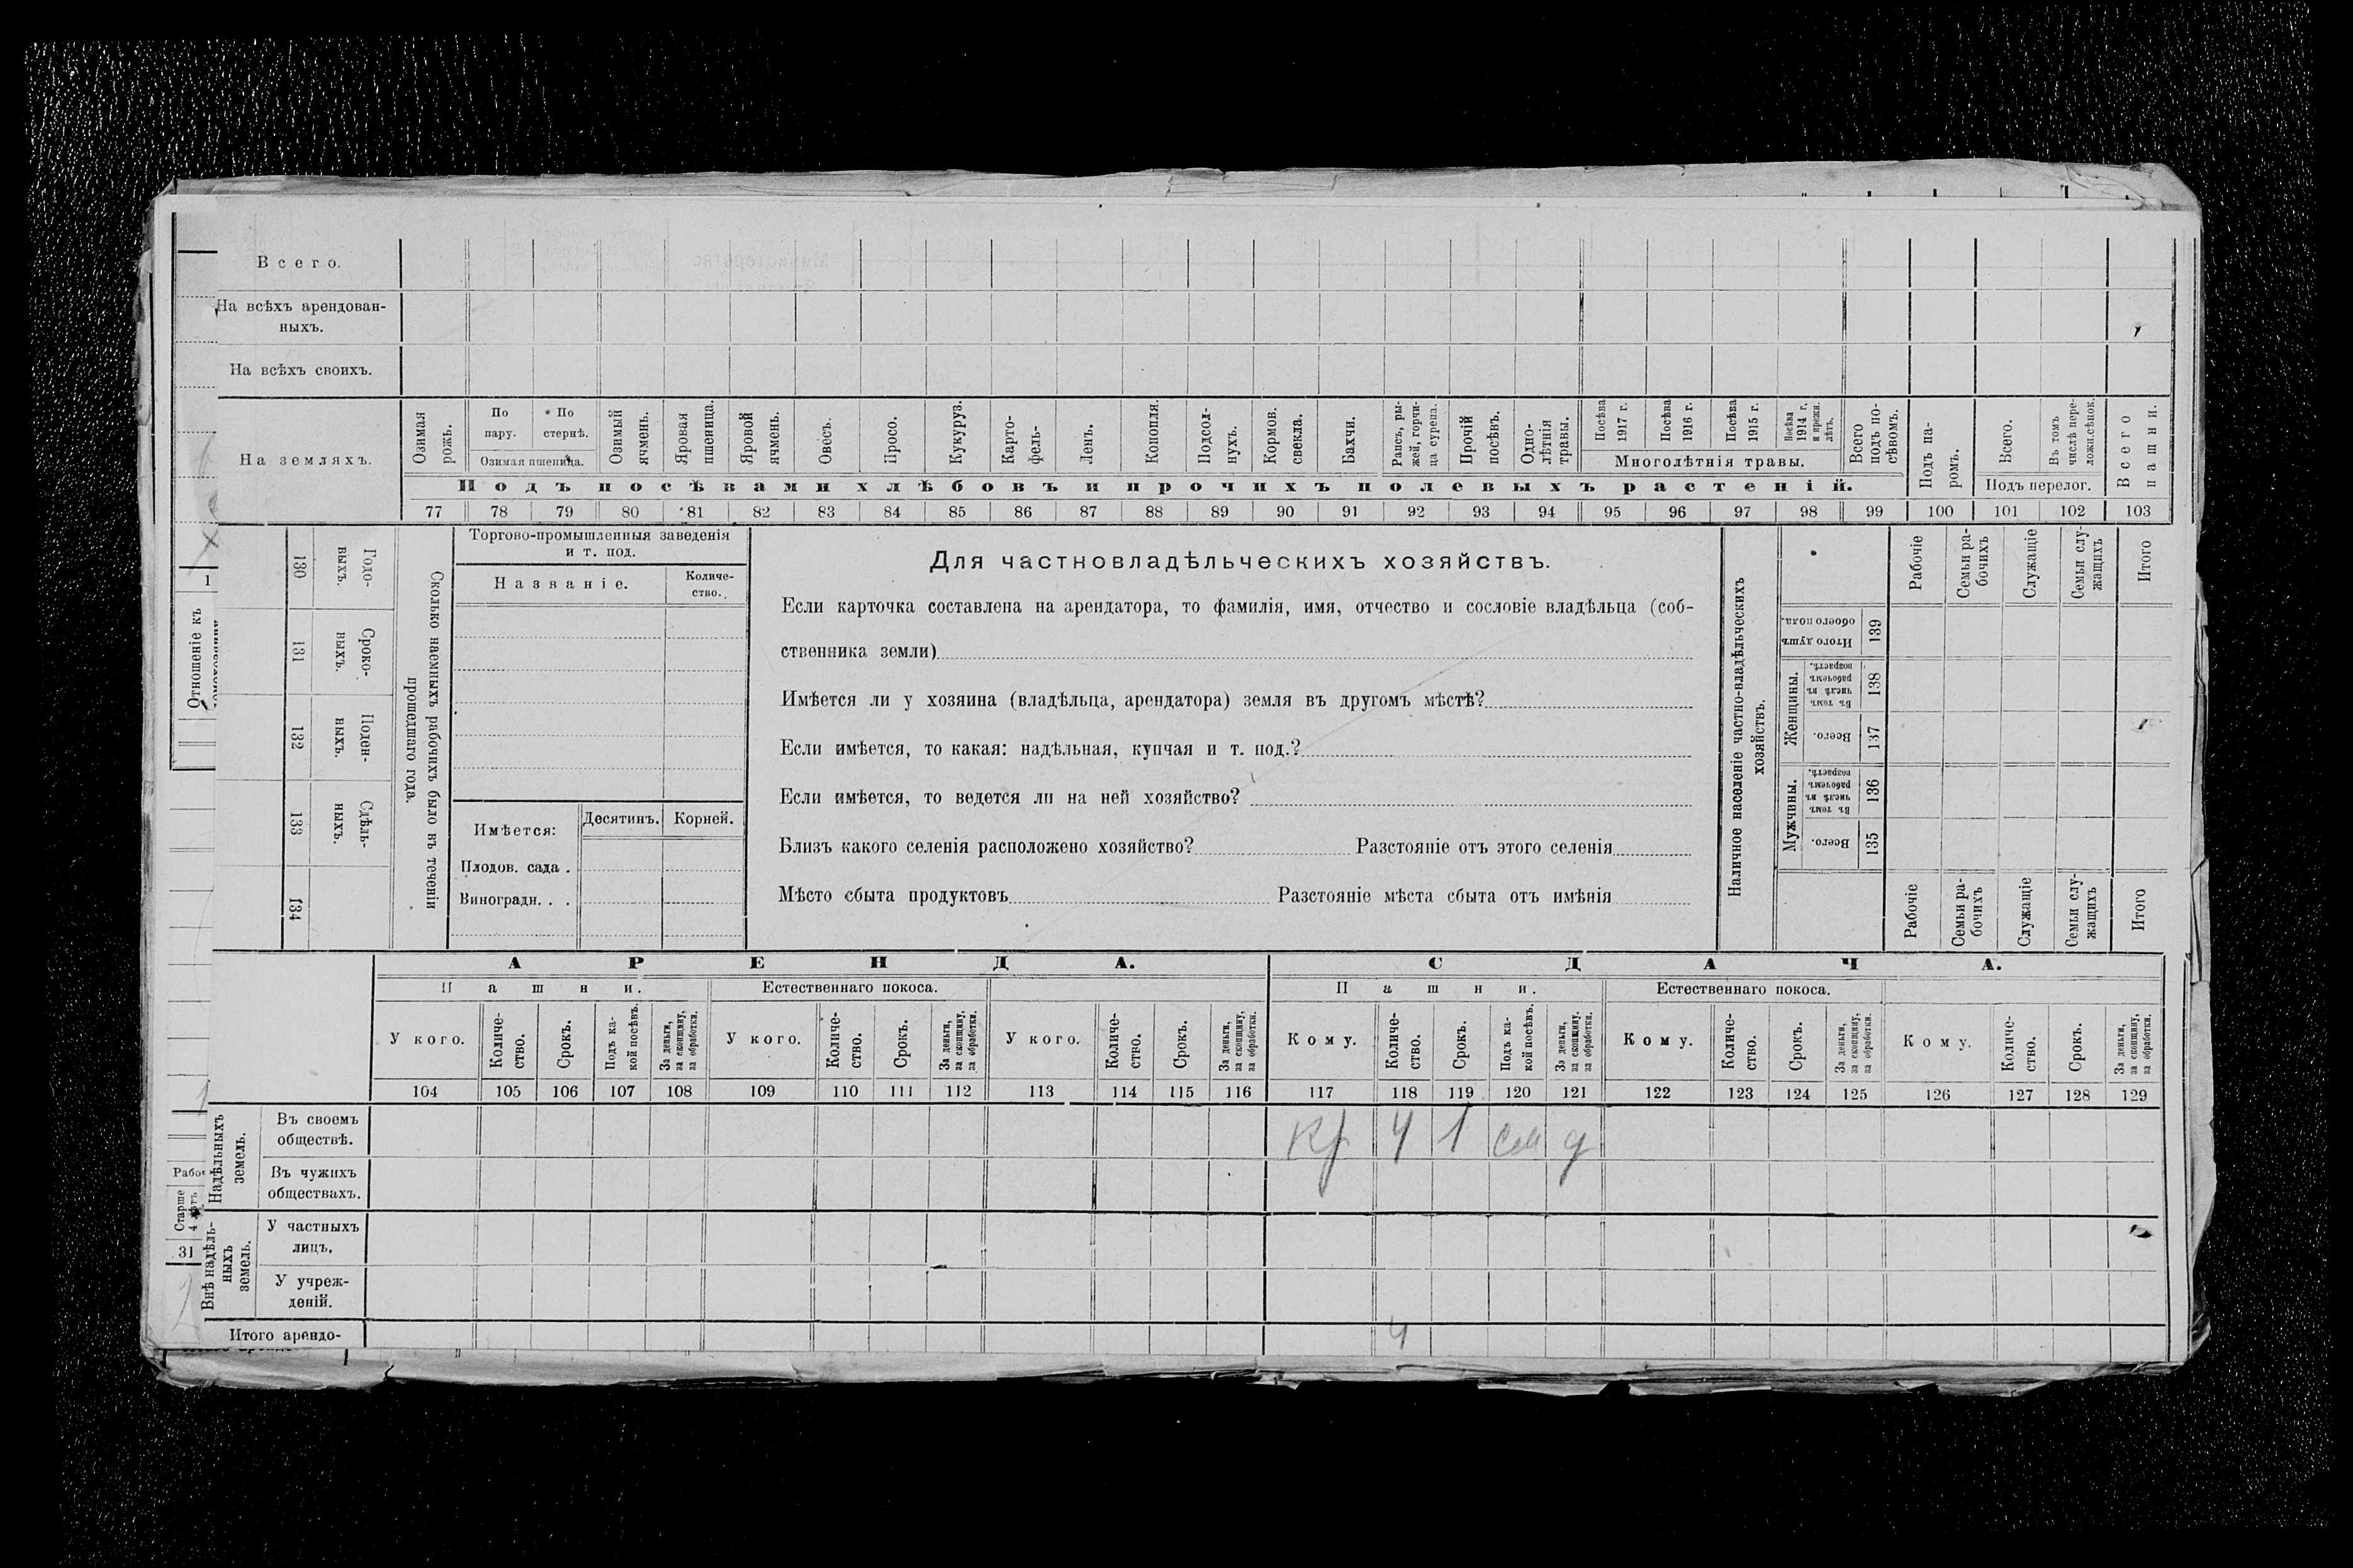 Всего.
На всѣхъ арендован-
ныхъ.
На всѣхъ своихъ.
На земляхъ.
Озимая рожь.
По пару.
По стернѣ.
Озимая пшеница.
Озимый ячмень.
Яровая пшеница.
Яровой ячмень.
Овесъ.
Просо.
Кукуруз.
Карто-
фель-
Ленъ.
Конопля.
Подсол-
нухъ.
Кормов. свекла.
Бахчи.
Рапсъ, ры-
жей, горчи-
ца сурепа.
Прочій посѣвъ.
Одно-
лѣтнія травы.
Посѣва 1917 г.
Посѣва 1916 г.
Посѣва 1915 г.
Посѣва 1914 г. и прежн. лѣтъ.
Многолѣтнія травы.
Всего подъ по-
сѣвомъ.
Подъ па-
ромъ.
Всего.
Въ томъ числѣ пере-
ложн.сѣнок.
Подъ перелог.
Всего пашни.
Подъ посѣвами хлѣбовъ и прочихъ полевыхъ растеній.
77 78 79 80 81 82 83 84 85 86 87 88 89 90 91 92 93 94 95 96 97 98 99 100 101 102 103
1
Отношеніе къ
130
Годо-
выхъ.
131
Сроко-
выхъ.
132
Поден-
ныхъ.
133
Сдѣль-
ныхъ.
134
Сколько наемныхъ рабочихъ было въ теченіи
прошедшаго года.
Торгово-промышленныя заведенія
и т. под.
Названіе.
Количе-
ство.
Имѣется:
Десятинъ.
Корней.
Плодов. сада .
Виноградн. . .
Для частновладѣльческихъ хозяйствъ.
Если карточка составлена на арендатора, то фамилія, имя, отчество и сословіе владѣльца (соб-
ственника земли)
Имѣется ли у хозяина (владѣльца, арендатора) земля въ другомъ мѣстѣ?
Если имѣется, то какая: надѣльная, купчая и т. под.?
Если имѣется, то ведется ли на ней хозяйство?
Близъ какого селенія расположено хозяйство? Разстояніе отъ этого селенія
Мѣсто сбыта продуктовъ Разстояніе мѣста сбыта отъ имѣнія
Наличное населеніе частно-владѣльческихъ
хозяйствъ.
Рабочіе
Семьи ра-
бочихъ
Служащіе
Семьи слу-
жащихъ
Итого
Итого душъ
обоего пола.
139
Женщины.
Въ томъ числѣ въ рабочемъ возрастѣ.
138
Всего.
137
Мужчины.
Въ томъ числѣ въ рабочемъ возрастѣ.
136
Всего.
135
Рабочіе
Семьи ра-
бочихъ
Служащіе
Семьи слу-
жащихъ
Итого
АРЕНДА.
СДАЧА.
Пашни.
Естественнаго покоса.
Пашни.
Естественнаго покоса.
У кого.
Количе-
ство.
Срокъ.
Подъ ка-
кой посѣвъ.
За деньги, за скопщину, за обработки.
У кого.
Количе-
ство.
Срокъ.
За деньги, за скопщину, за обработки.
У кого.
Количе-
ство.
Срокъ.
За деньги, за скопщину, за обработки.
Кому.
Количе-
ство.
Срокъ.
Подъ ка-
кой посѣвъ.
За деньги, за скопщину, за обработки.
Кому.
Количе-
ство.
Срокъ.
За деньги, за скопщину, за обработки.
Кому.
Количе-
ство.
Срокъ.
За деньги, за скопщину, за обработки.
104 105 106 107 108 109 110 111 112 113 114 115 116 117 118 119 120 121 122 123 124 125 126 127 128 129
Надѣльныхъ
земель.
Въ своемъ
обществѣ.
Кр 4 1 см д
Въ чужихъ
обществахъ.
Старше
31
Внѣ надѣль-
ныхъ
земель.
У частныхъ
лицъ.
У учреж-
деній.
Итого арендо-
4